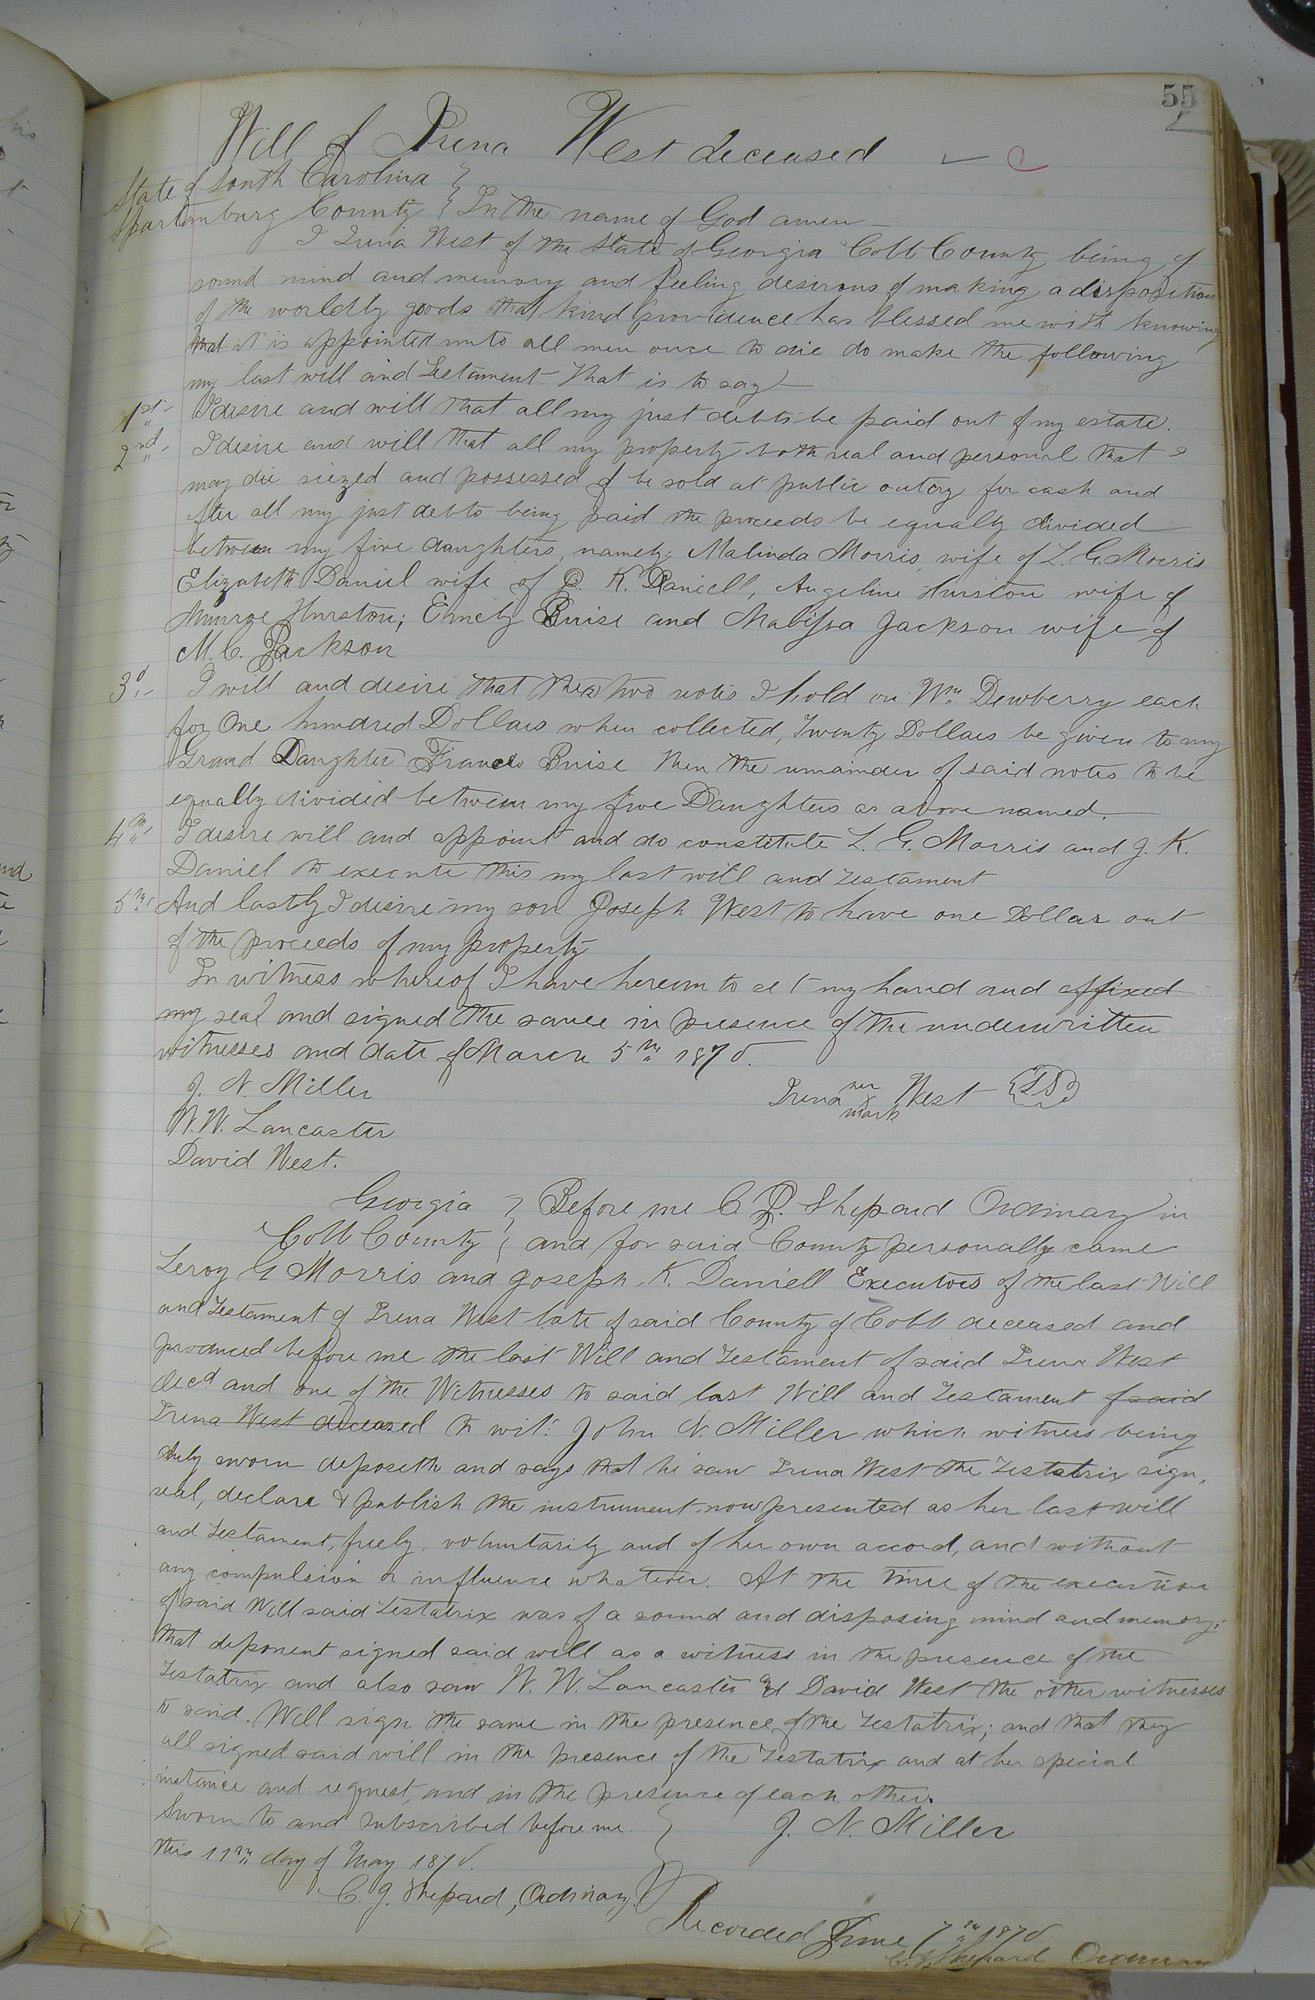 55
Will of Irena West deceased
State of South Carolina }
Spartanburg County } In the name of God amen
I Irena West of the State of Georgia Cobb County being of
sound mind and memory and feeling desirous of making a disposition
of the worldly goods that kind providence has blessed me with knowing
that it is appointed unto all men once to die do make the following
my last will and Testament. That is to say
1st I desire and will that all my just debts be paid out of my estate.
2nd I desire and will that all my property both real and personal that I
may die siezed and possessed of be sold at public outcry for cash and
after all my just debts being paid the proceeds be equally divided
between my five daughters, namely: Malinda Morris, wife of L. G. Morris
Elizabeth Daniel wife of J. K. Daniell, Angeline Hurston wife of
Munroe Hurston; Emely Buise and Malissa Jackson wife of
M. C. Jackson
3d I will and desire that the two notes I hold on Wm Dewberry each
for One hundred Dollars when collected, Twenty Dollars be given to my
Grand Daughter Frances Buise then the remainder of said notes to be
equally divided between my five Daughters as above named.
4th I desire will and appoint and do constitute L. G. Morris and J. K.
Daniel to execute this my last will and testament
5th And lastly I desire my son Joseph West to have one Dollar out
of the proceeds of my property
In witness whereof I have hereunto set my hand and affixed
my seal and signed the same in presence of the underwritten
witnesses and date of March 5th 1878
J. N. Miller
Irena her x mark West {LS}
W. W. Lancaster
David West.
Georgia } Before me C. J. Shepard Ordinary in
Cobb County } and for said County personally came
Leroy G Morris and Joseph K. Daniell Executors of the last Will
and Testament of Irena West late of said County of Cobb deceased and
produced before me the last Will and Testament of said Irena West
decd and one of the Witnesses to said last Will and Testament of said
Irena West deceased to wit: John N. Miller which witness being
duly sworn deposeth and says that he saw Irena West the Testatrix sign,
seal, declare & publish the instrument now presented as her last will
and Testament, freely, voluntarily and of her own accord, and without
any compulsion or influence whatever. At the time of the execution
of said Will said Testatrix was of a sound and disposing mind and memory;
that deponent signed said will as a witness in the presence of the
Testatrix and also saw W. W. Lancaster and David West the other witnesses
to said Will sign the same in the presence of the Testatrix; and that they
all signed said will in the presence of the Testatrix and at her special
instance and request, and in the presence of each other.
Sworn to and subscribed before me }
J. N. Miller
this 11th day of May 1878.
C. J. Shepard, Ordinary.
Recorded June 7th 1878
C. J. Shepard Ordinary